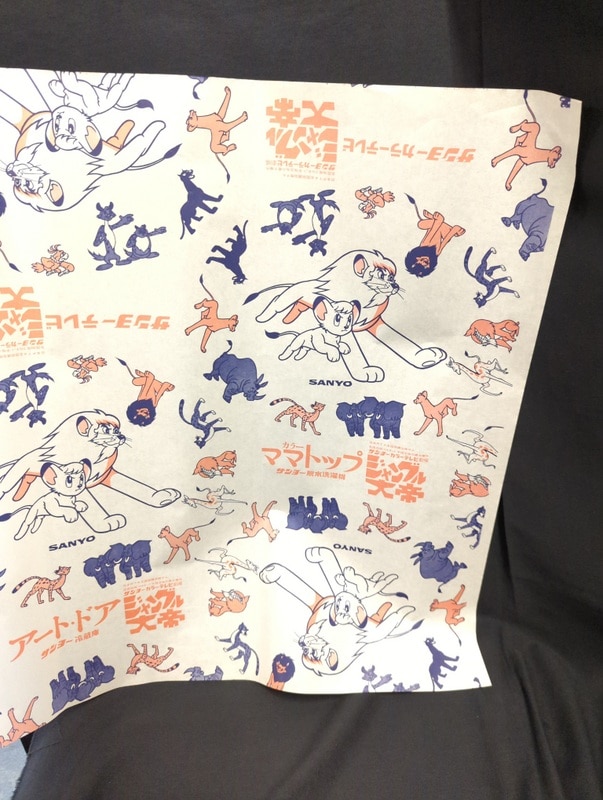 ジャングル大帝
サンヨーカラーテレビ
ジャングル大帝
サンヨーカラーテレビ
SANYO
カラー
ママトップ
サンヨー噴水洗濯機
ジャングル大帝
SANYO
SANYO
アート・ドア
サンヨー冷蔵庫
ジャングル大帝